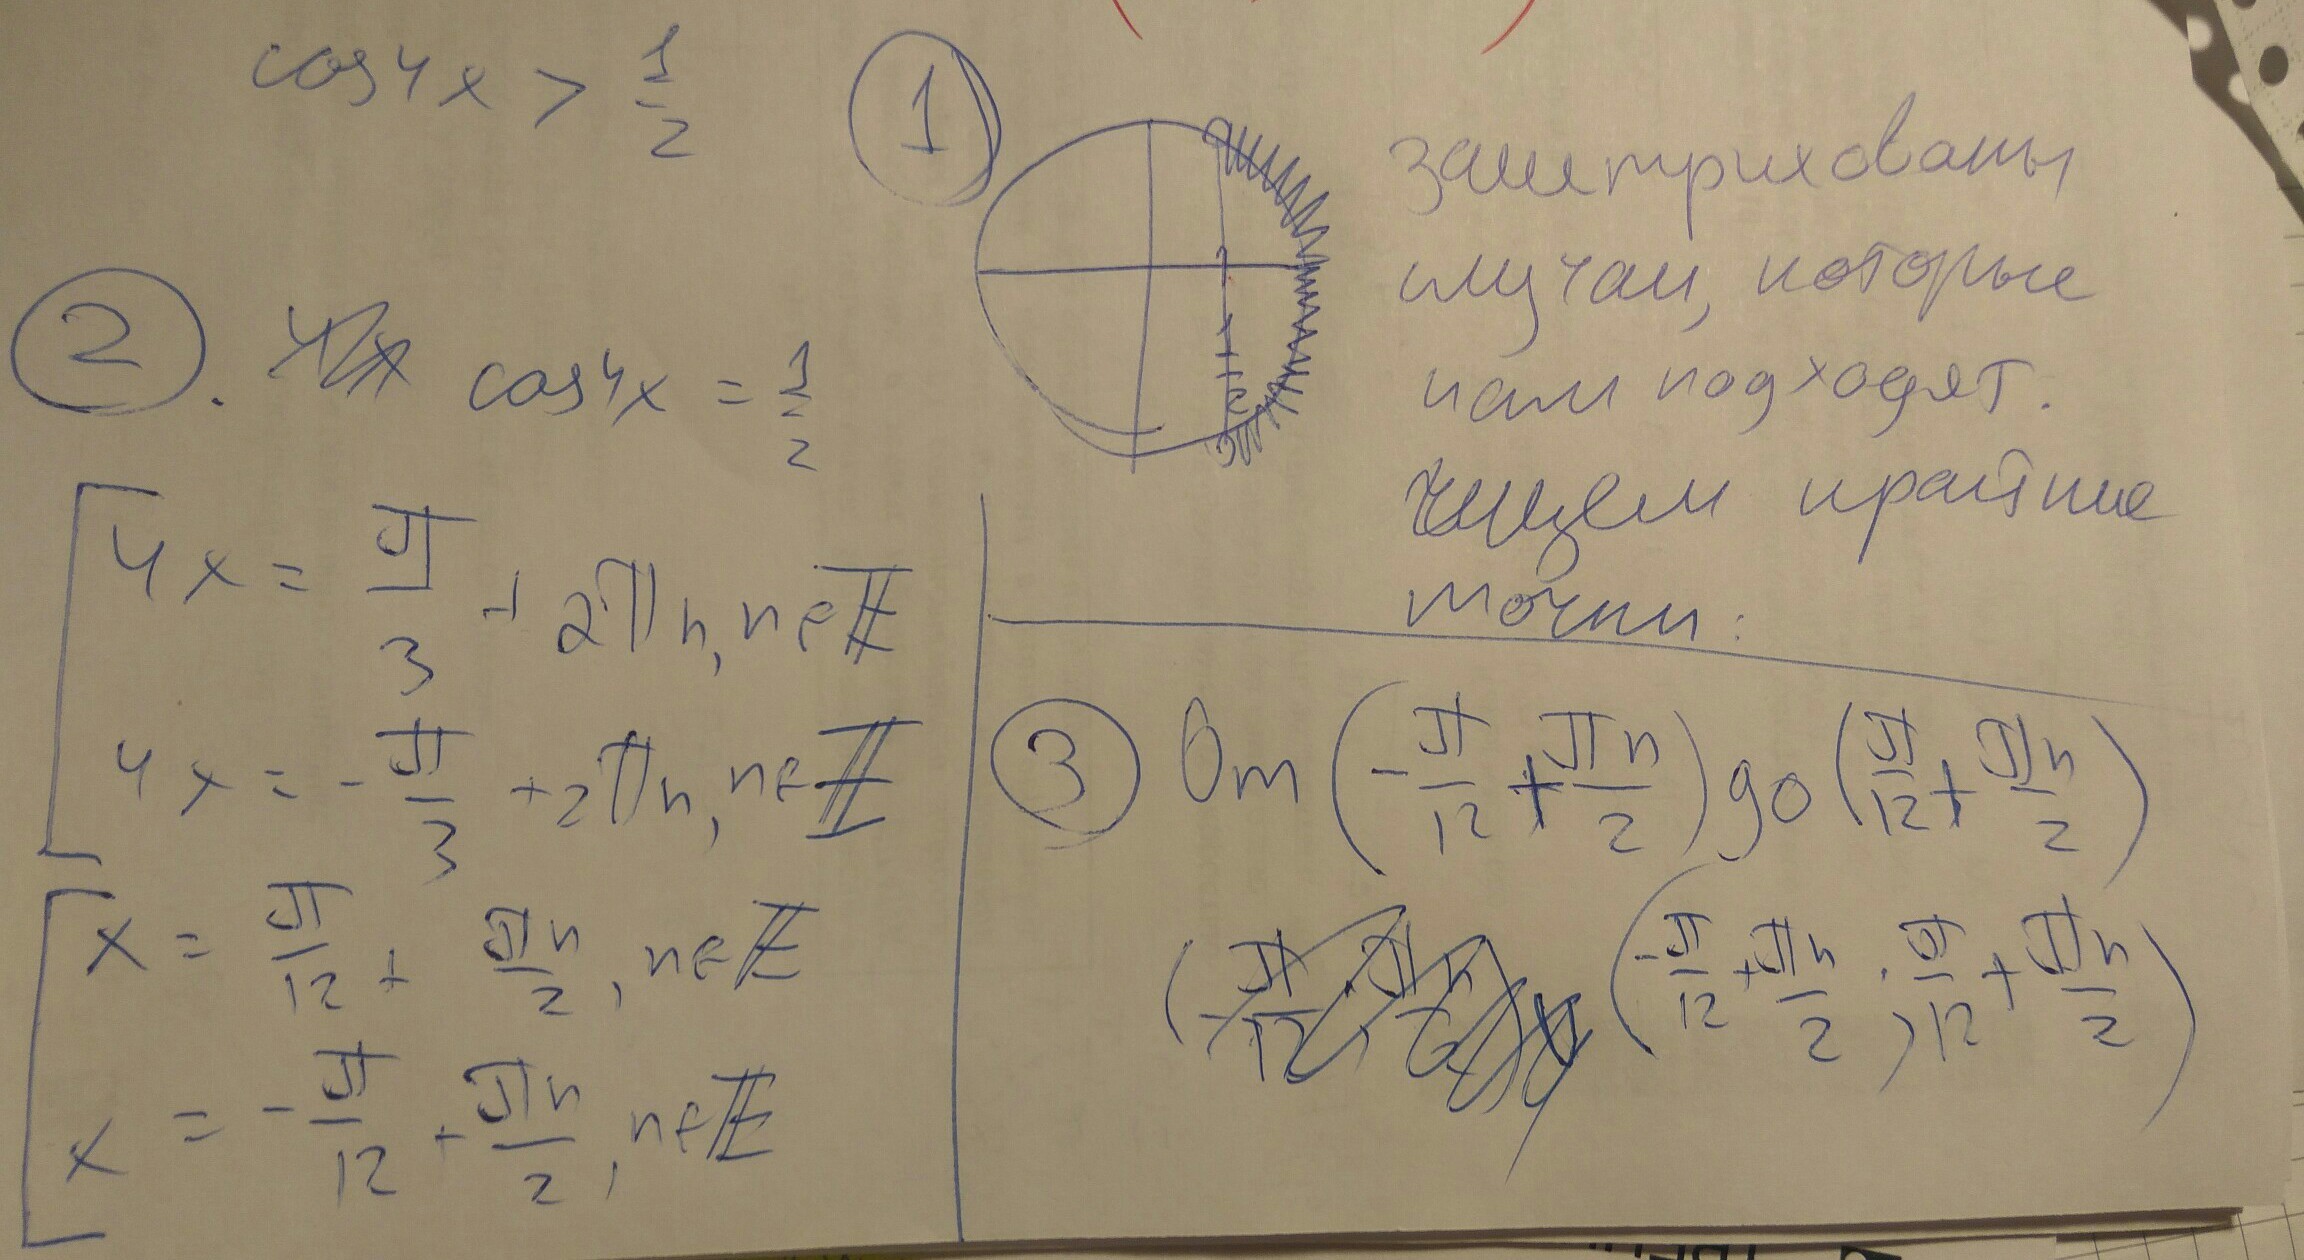 cos4x > 1/2
1
заштрихованы
случаи, которые
нам подходят.
ищем крайние
точки:
2. cos4x = 1/2
4x = π/3 + 2πn, n∈Z
4x = -π/3 + 2πn, n∈Z
x = π/12 + πn/2, n∈Z
x = -π/12 + πn/2, n∈Z
3 От (-π/12 + πn/2) до (π/12 + πn/2)
(-π/12 + πn/2 ; π/12 + πn/2)